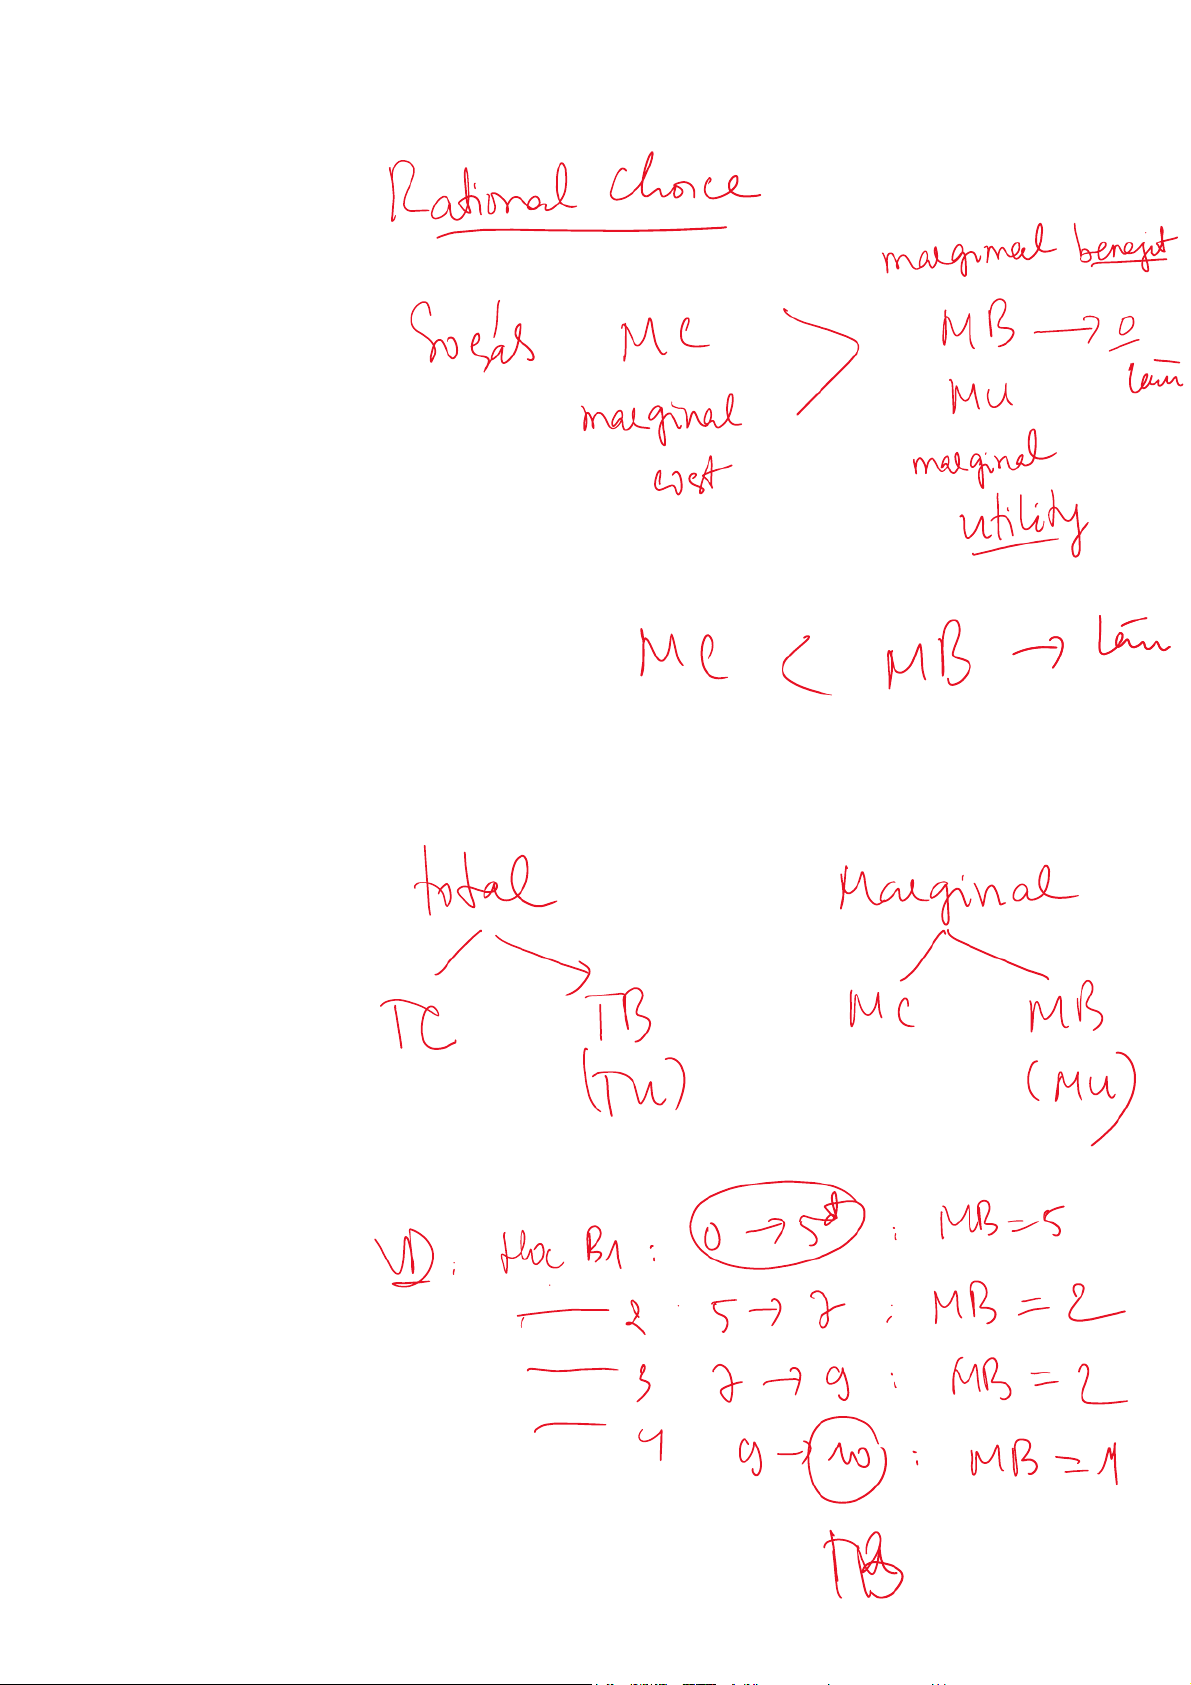 Rational Choice
marginal benefit
So sánh MC > MB → 0
làm
MU
marginal
cost
marginal
utility
MC < MB → làm
total Marginal
TC TB MC MB
(TU) (MU)
VD: Học B1: 0 → 5đ : MB = 5
— 2 5 → 7 : MB = 2
— 3 7 → 9 : MB = 2
— 4 9 → 10 : MB = 1
TB